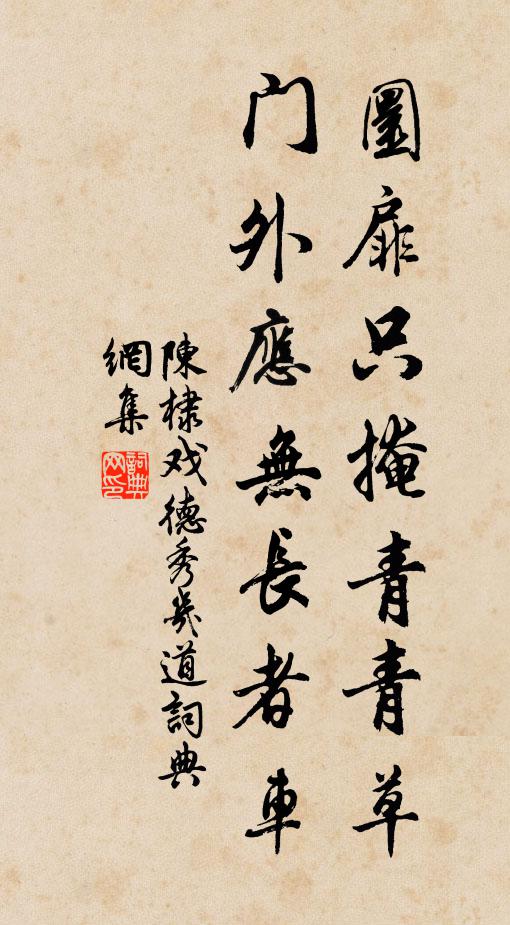 圜扉只掩青青草
门外應無長者車
陳棣戏德秀幾道詞典
網集
詞典網印